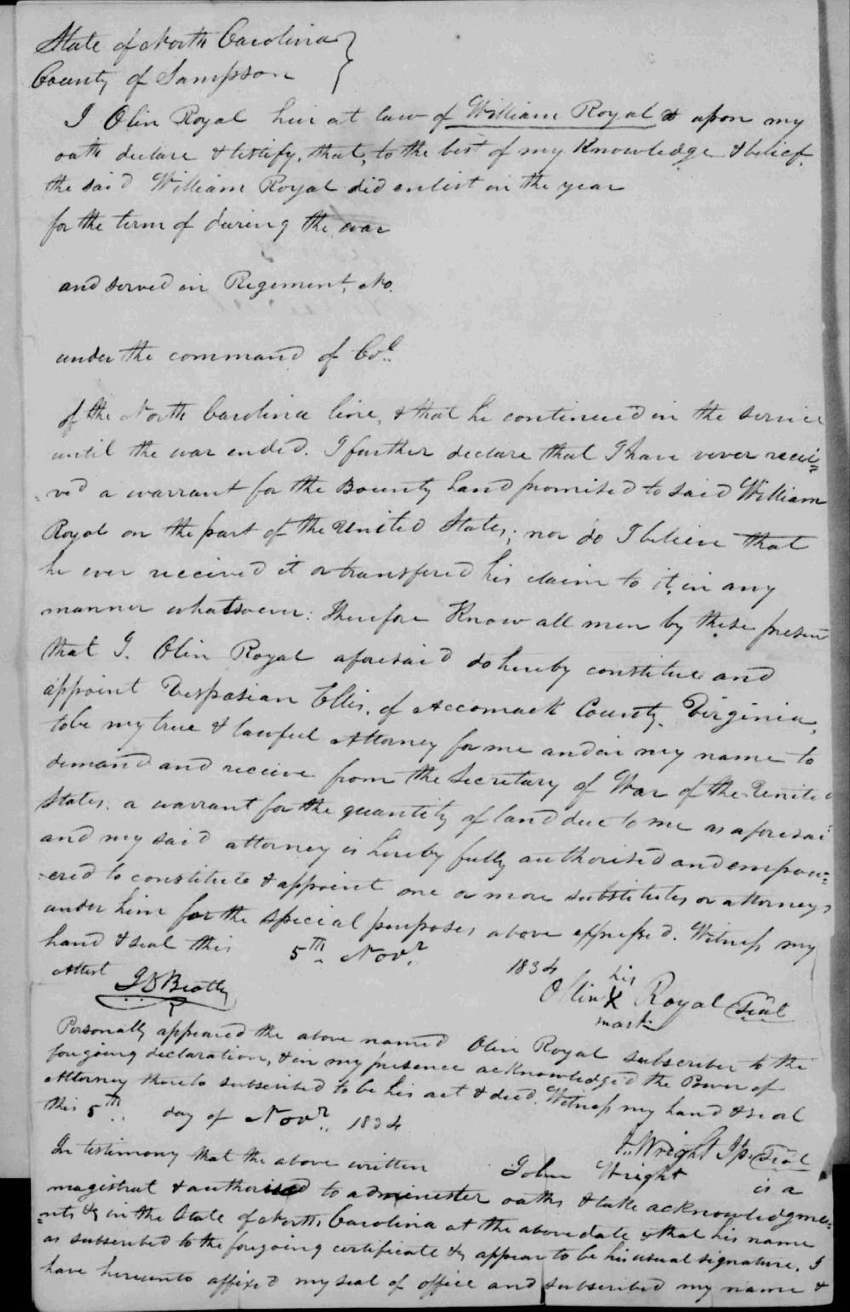 State of North Carolina }
County of Sampson
I Olin Royal heir at law of William Royal & upon my
oath declare & testify, that, to the best of my Knowledge & belief
the said William Royal did enlist in the year
for the term of during the war
and served in Regiment, No.
under the command of Col.
of the North Carolina line, & that he continued in the service
until the war ended. I further declare that I have never recei=
ved a warrant for the Bounty Land promised to said William
Royal on the part of the United States; nor do I believe that
he ever received it or transfered his claim to it, in any
manner whatsoever: Therefore Know all men by these present
that I. Olin Royal aforesaid do hereby constitute and
appoint Vespasian Ellis, of Accomack County, Virginia,
to be my true & lawful Attorney for me and in my name to
demand and receive from the Secretary of War of the United
States, a warrant for the quantity of land due to me as aforesai
and my said attorney is hereby fully authorised and empow=
-ered to constitute & appoint one or more substitutes or attorneys
under him for the special purposes above expressed. Witness my
hand & seal this 5th Novr. 1834
Attest J D Beatty Olin his X mark Royal Seal
Personally appeared the above named Olin Royal subscriber to the
forgoing declaration, & in my presence acknowledged the Power of
Attorney thereto subscribed to be his act & deed. Witness my hand & seal
this 5th day of Novr. 1834
J. Wright Jp. Seal
In testimony that the above written John Wright is a
magistrat & authorised to administer oaths & take acknowledgme=
=nts & in the State of North Carolina at the above date & that his name
as subscribed to the forgoing certificate & appear to be his usual signature. I
have hereunto affixed my seal of office and subscribed my name &